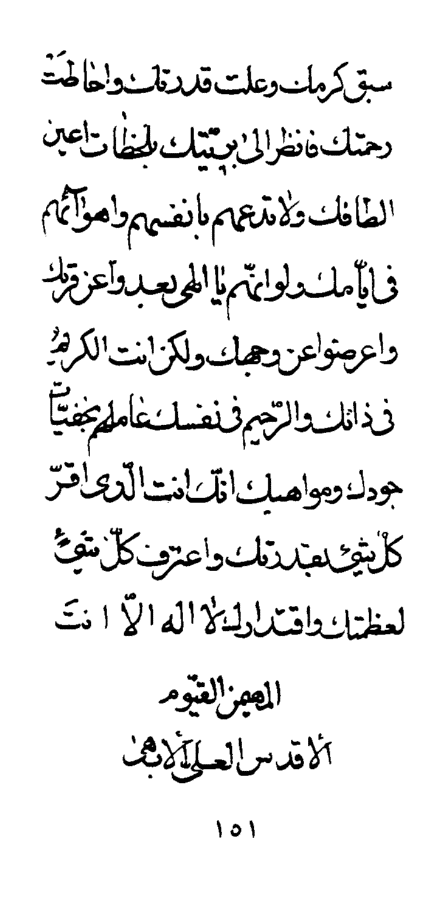 سبق كرمك وعلت قدرتك واحاطت
رحمتك فانظر الی بريّتك بلحظات اعين
الطافك ولا تدعهم بانفسهم واهوائهم
فی ايّامك ولو انّهم يا الهی بعدوا عن قربك
واعرضوا عن وجهك ولكن انت الكريم
فی ذاتك والرّحيم فی نفسك عاملهم بخفيّات
جودك ومواهبك انّك انت الّذی اقرّ
كلّ شیء بقدرتك واعترف كلّ شیء
لعظمتك واقتدارك لا اله الّا انت
المهيمن القيّوم
الاقدس العلی الابهی
١٥١